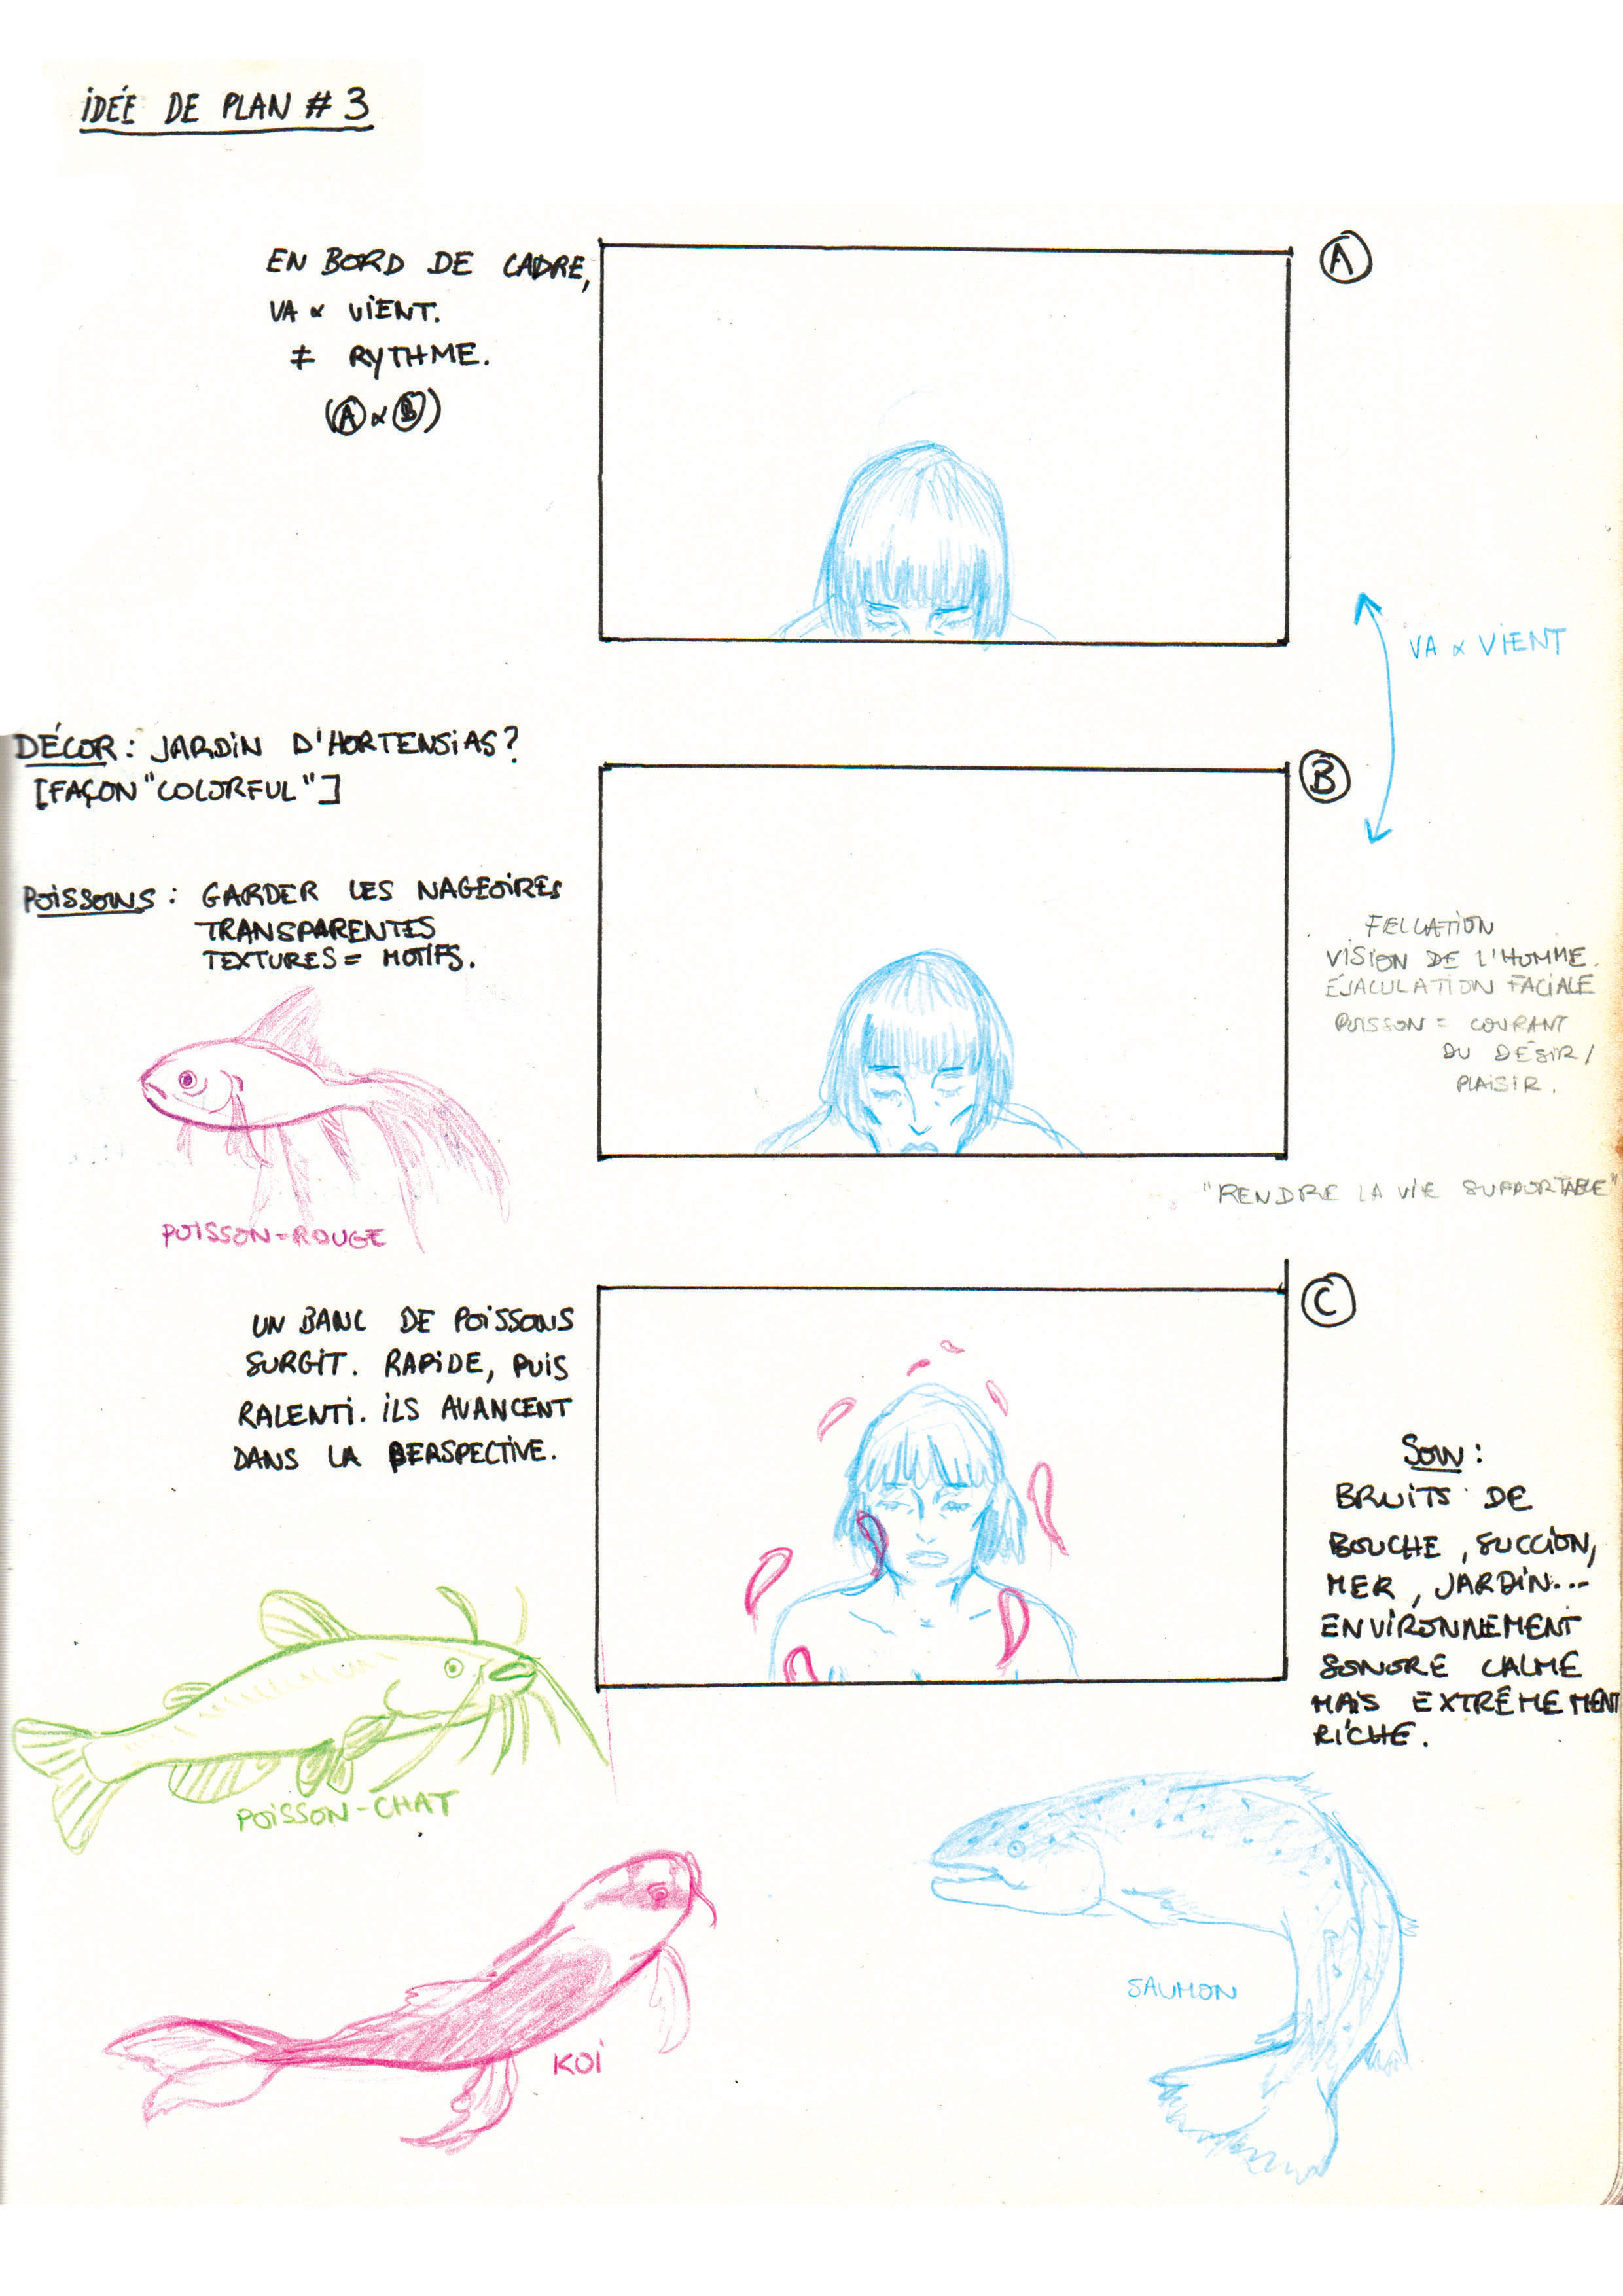 IDÉE DE PLAN # 3
EN BORD DE CADRE,
VA & VIENT.
≠ RYTHME.
(A & B)
A
VA & VIENT
DÉCOR : JARDIN D'HORTENSIAS ?
[FAÇON "COLORFUL"]
B
POISSONS : GARDER LES NAGEOIRES
TRANSPARENTES
TEXTURES = MOTIFS.
FELLATION
VISION DE L'HOMME.
ÉJACULATION FACIALE
POISSON = COURANT
DU DÉSIR /
PLAISIR.
"RENDRE LA VIE SUPPORTABLE"
POISSON-ROUGE
C
UN BANC DE POISSONS
SURGIT. RAPIDE, PUIS
RALENTI. ILS AVANCENT
DANS LA PERSPECTIVE.
SON :
BRUITS DE
BOUCHE, SUCCION,
MER, JARDIN...
ENVIRONNEMENT
SONORE CALME
MAIS EXTRÊMEMENT
RICHE.
POISSON-CHAT
KOI
SAUMON